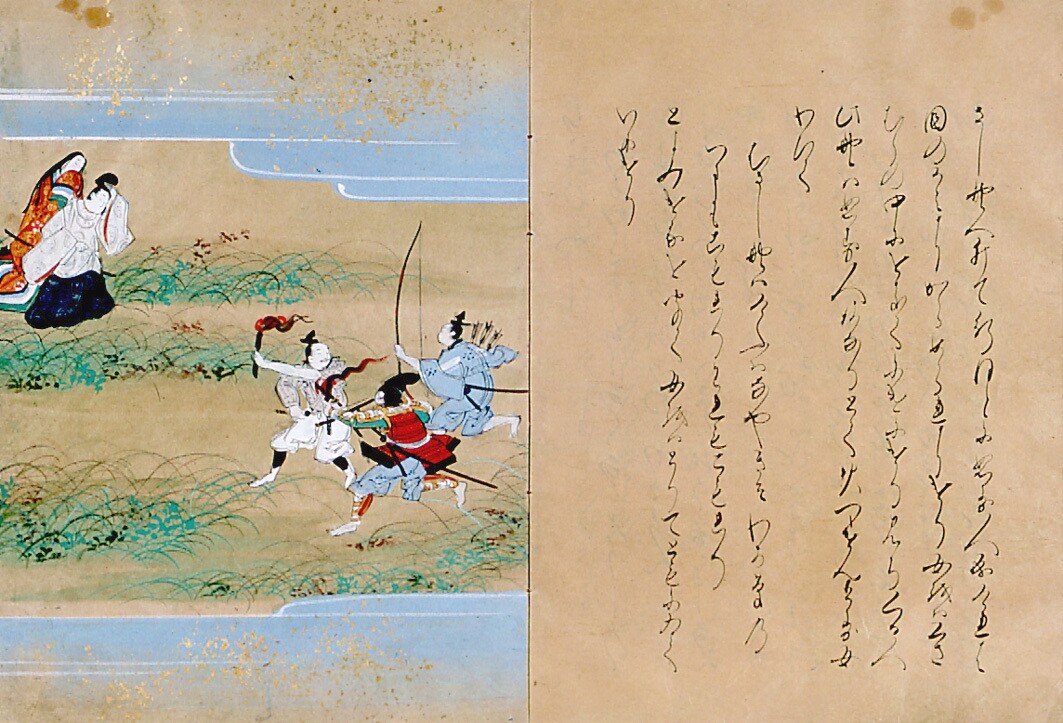 さし野へゐて行ほとにぬす人なりけれは
国のかみにからめられにけり女をはくさ
むらの中にをきてにけにけりみちくる人
此野はぬす人あなりとて火つけんとす女
わひて
むさし野はけふはなやきそわかくさの
つまもこもれりわれもこもれり
とよみけるをきゝて女をはとりてともにゐて
いにけり